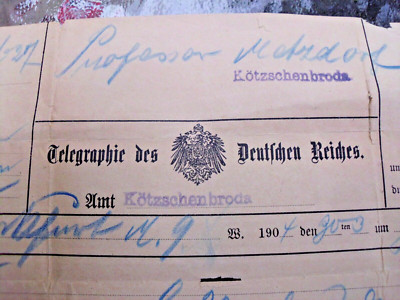 Professor Metzdorf
Kötzschenbroda
Telegraphie des Deutschen Reiches.
Amt Kötzschenbroda
M. 9 W. 1904 den 30 ten 3 um